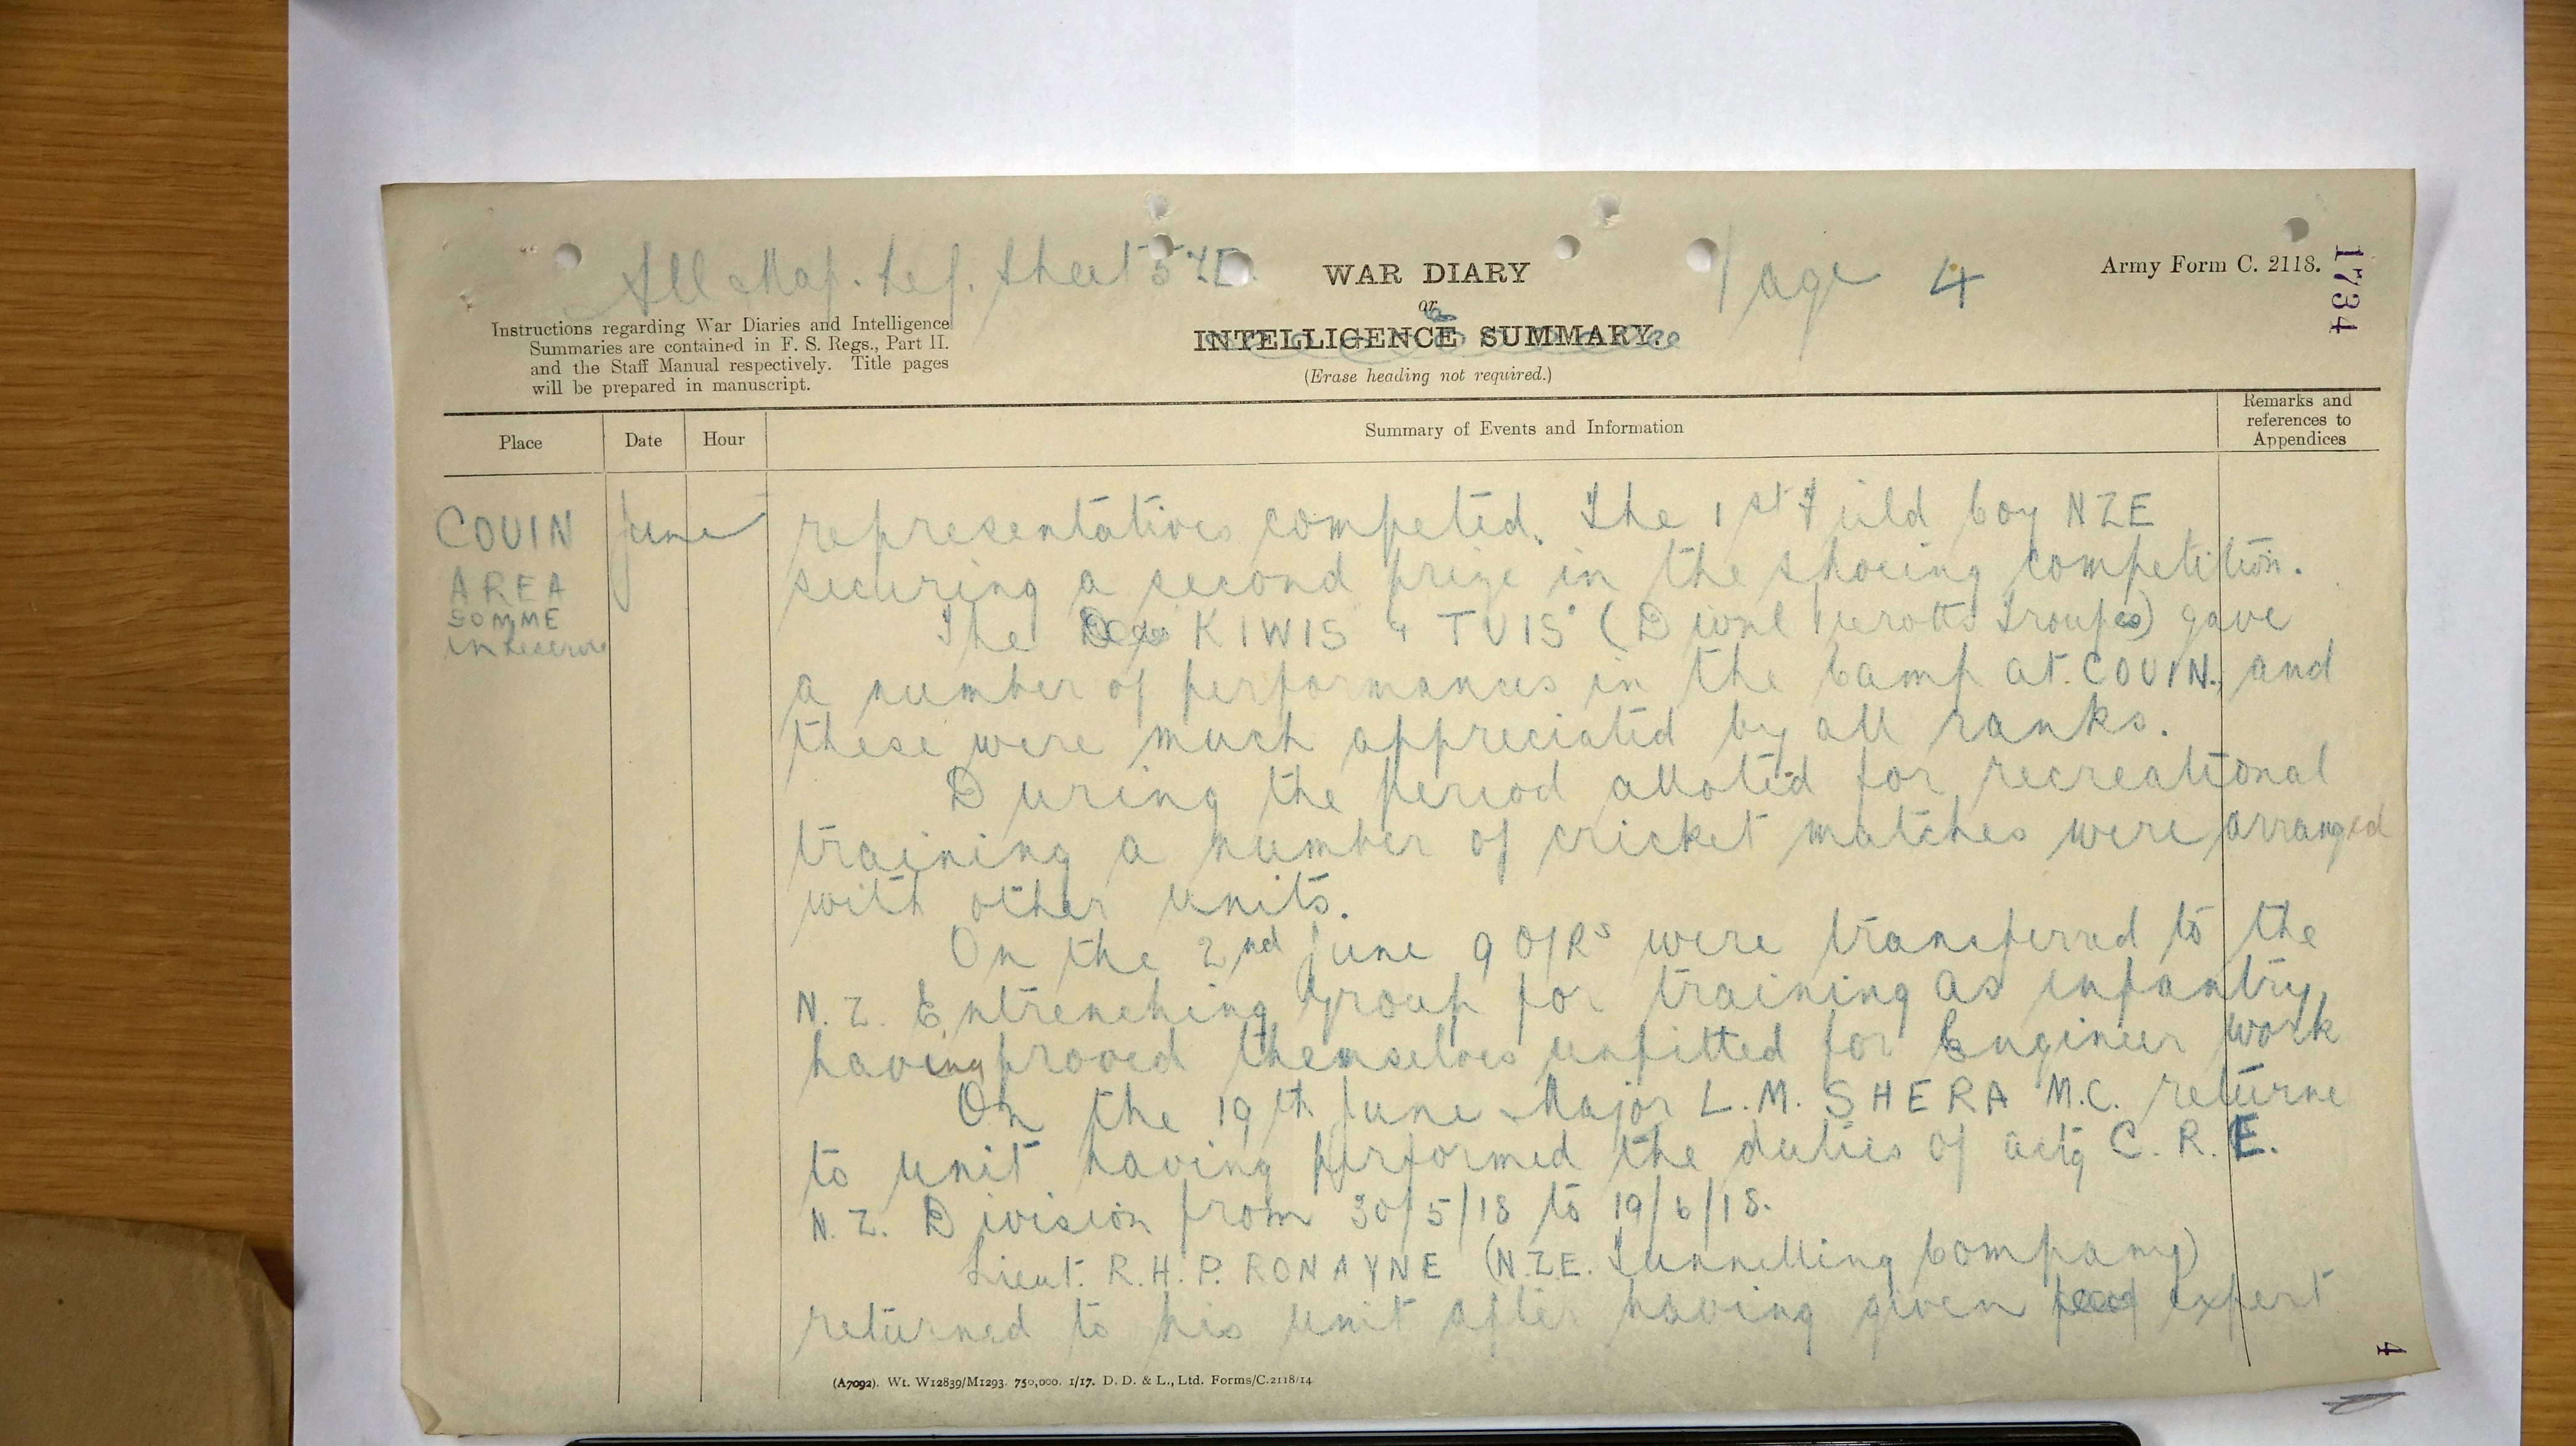 All Map. ref. Sheet 57D.
WAR DIARY
or
INTELLIGENCE SUMMARY.
(Erase heading not required.)
Page 4
Army Form C. 2118.
1734
Instructions regarding War Diaries and Intelligence
Summaries are contained in F. S. Regs., Part II.
and the Staff Manual respectively. Title pages
will be prepared in manuscript.
Place
Date
Hour
Summary of Events and Information
Remarks and
references to
Appendices
COUIN
AREA
SOMME
in reserve
June
representatives competed. The 1st Field Coy NZE
securing a second prize in the shoeing competition.
The KIWIS & TUIS (Divnl Pierotts Troupes) gave
a number of performances in the Camp at COUIN, and
these were much appreciated by all ranks.
During the period alloted for recreational
training a number of cricket matches were arranged
with other units.
On the 2nd June 9 O/Rs were transferred to the
N. Z. Entrenching Group for training as infantry,
having proved themselves unfitted for Engineer work
On the 19th June Major L.M. SHERA M.C. returne
to unit having performed the duties of actg C. R. E.
N. Z. Division from 30/5/18 to 19/6/18.
Lieut. R.H.P. RONAYNE (N.Z.E. Tunnelling Company)
returned to his unit after having given expert
(A7092). Wt. W12839/M1293. 750,000. 1/17. D. D. & L., Ltd. Forms/C.2118/14.
4